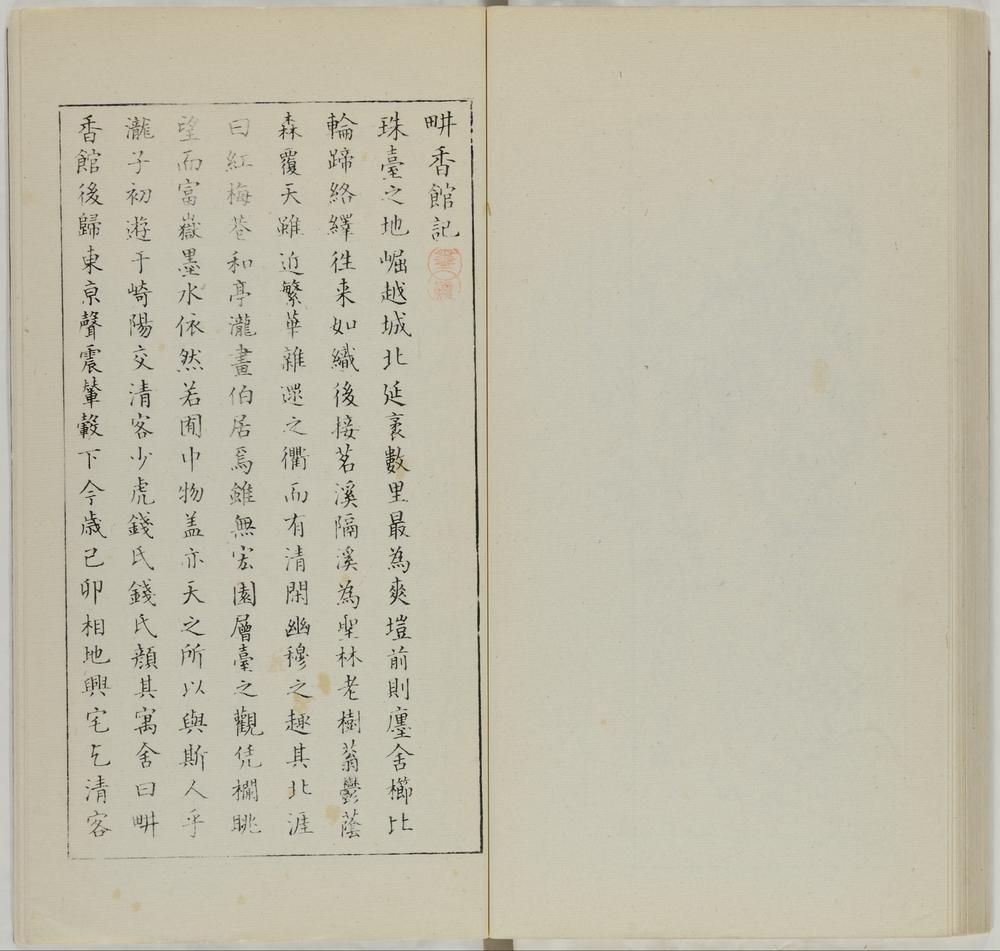 畊香館記
珠臺之地崛越城北延袤數里最為爽塏前則廛舍櫛比
輪蹄絡繹往来如織後接茗溪隔溪為聖林老樹蓊鬱蔭
森覆天雖近繁華雜遝之衢而有清閑幽穆之趣其北涯
曰紅梅巷和亭瀧畫伯居焉雖無宏園層臺之觀凭欄眺
望而富嶽墨水依然若囿中物盖亦天之所以與斯人乎
瀧子初遊于崎陽交清客少虎錢氏錢氏顔其寓舍曰畊
香館後歸東京聲震輦轂下今歳己卯相地興宅乞清客